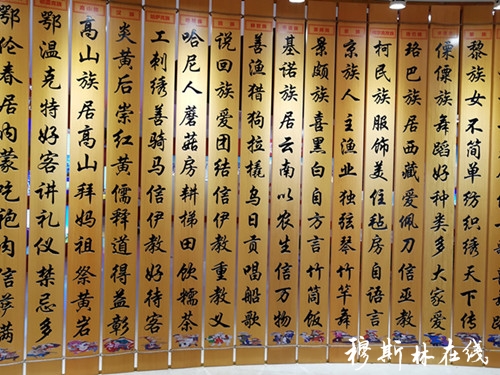 黎族女不简单纺织绣天下传
傈僳族舞蹈好种类多大家爱
珞巴族居西藏爱佩刀信巫教
柯民族服饰美住毡房自语言
京族人主渔业独弦琴竹竿舞
景颇族喜黑白自方言竹筒饭
基诺族居云南以农生信万物
善渔猎狗拉撬乌日贡唱船歌
说回族爱团结信伊教重教义
哈尼人蘑菇房耕梯田饮糯茶
工刺绣善骑马信伊教好待客
炎黄后崇红黄儒释道得益彰
高山族居高山拜妈祖祭黄岩
鄂温克特好客讲礼仪禁忌多
鄂伦春居内蒙吃狍肉信萨满
穆斯林在线